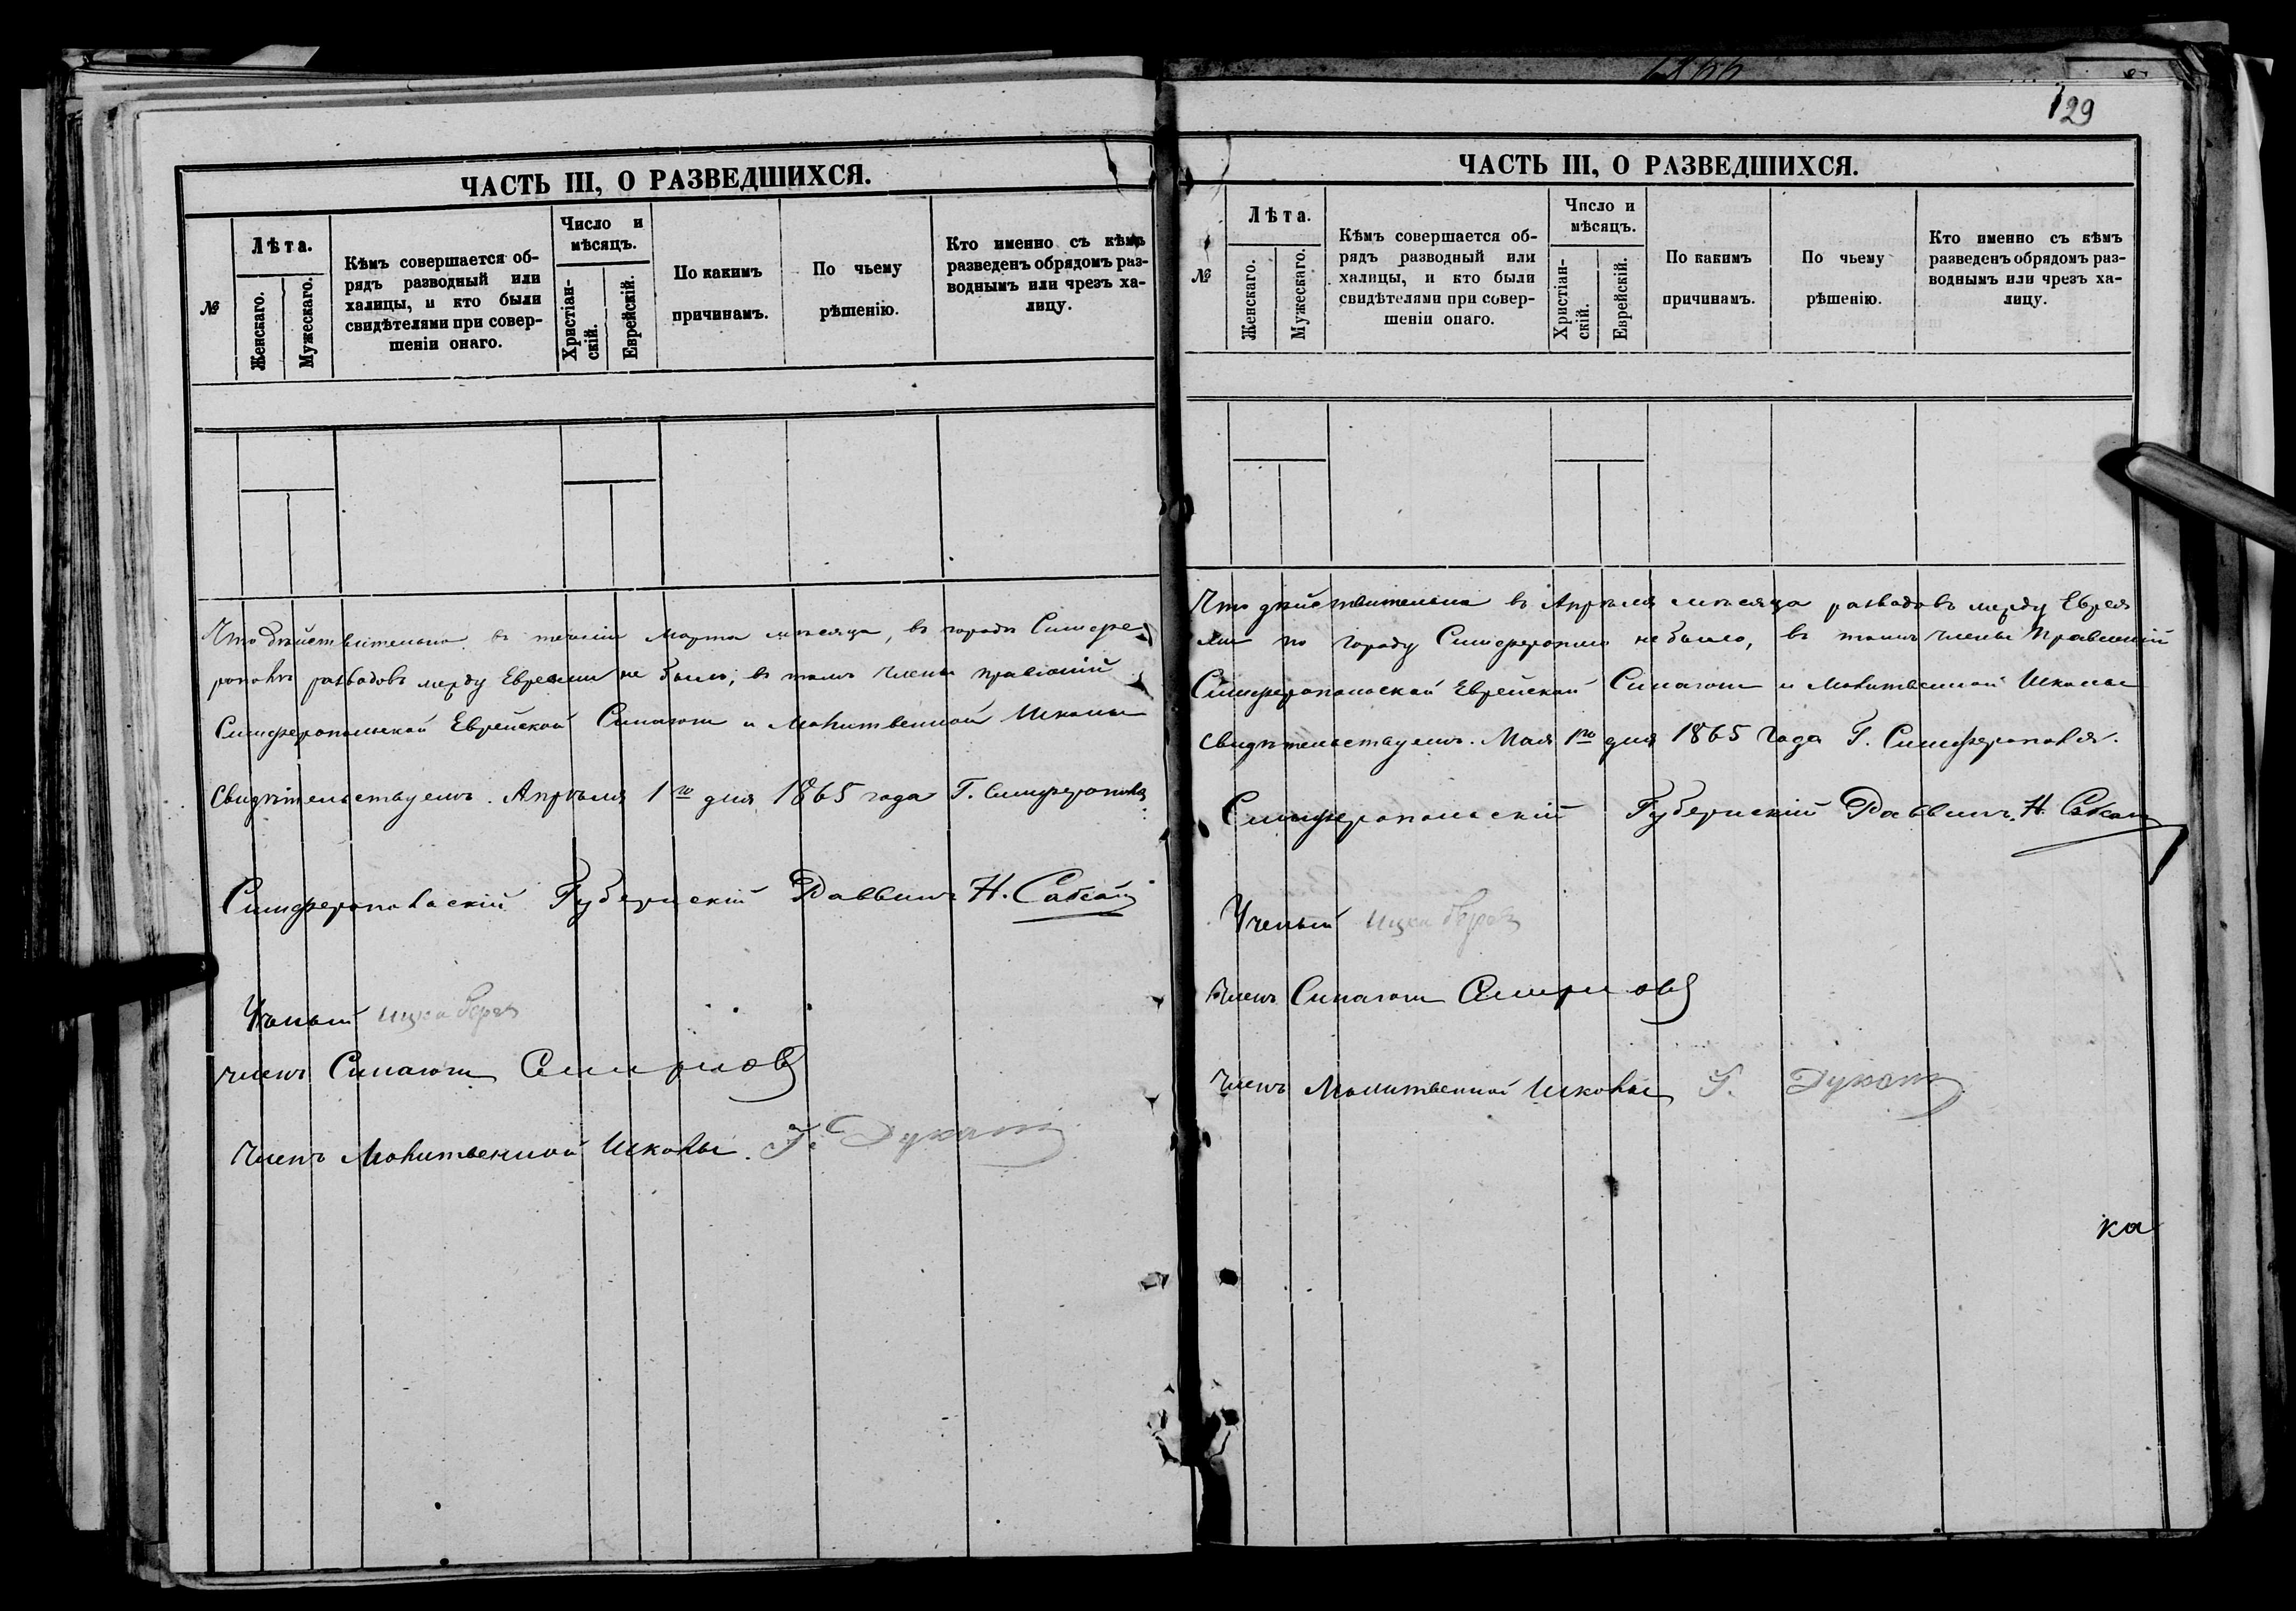 129
ЧАСТЬ III, О РАЗВЕДШИХСЯ.
№
Лѣта.
Женскаго.
Мужескаго.
Кѣмъ совершается об-
рядъ разводный или
халицы, и кто были
свидѣтелями при совер-
шеніи онаго.
Число и
мѣсяцъ.
Христіан-
скій.
Еврейскій.
По какимъ
причинамъ.
По чьему
рѣшенію.
Кто именно съ кѣмъ
разведенъ обрядомъ раз-
воднымъ или чрезъ ха-
лицу.
Что дѣйствительно въ теченіи Марта мѣсяца, въ городѣ Симфе
рополѣ разводовъ между Евреями не было, въ томъ члены правленій
Симферопольской Еврейской Синагоги и Молитвенной Школы
свидѣтельствуемъ. Апрѣля 1го дня 1865 года Г. Симферополь
Симферопольскій Губернскій Раввинъ Н.
Ученый Ицка
членъ Синагоги Смирновъ
Членъ Молитвенной Школы. Г. Дукатъ
ЧАСТЬ III, О РАЗВЕДШИХСЯ.
№
Лѣта.
Женскаго.
Мужескаго.
Кѣмъ совершается об-
рядъ разводный или
халицы, и кто были
свидѣтелями при совер-
шеніи онаго.
Число и
мѣсяцъ.
Христіан-
скій.
Еврейскій.
По какимъ
причинамъ.
По чьему
рѣшенію.
Кто именно съ кѣмъ
разведенъ обрядомъ раз-
воднымъ или чрезъ ха-
лицу.
Что дѣйствительно въ Апрѣлѣ мѣсяца разводовъ между Еврея
ми по городу Симферополю не было, въ томъ члены Правленій
Симферопольской Еврейской Синагоги и Молитвенной Школы
свидѣтельствуемъ. Мая 1го дня 1865 Года Г. Симферополя.
Симферопольскій Губернскій Раввинъ Н.
Ученый Ицка
членъ Синагоги Смирновъ
Членъ Молитвенной Школы Г. Дукатъ
ка